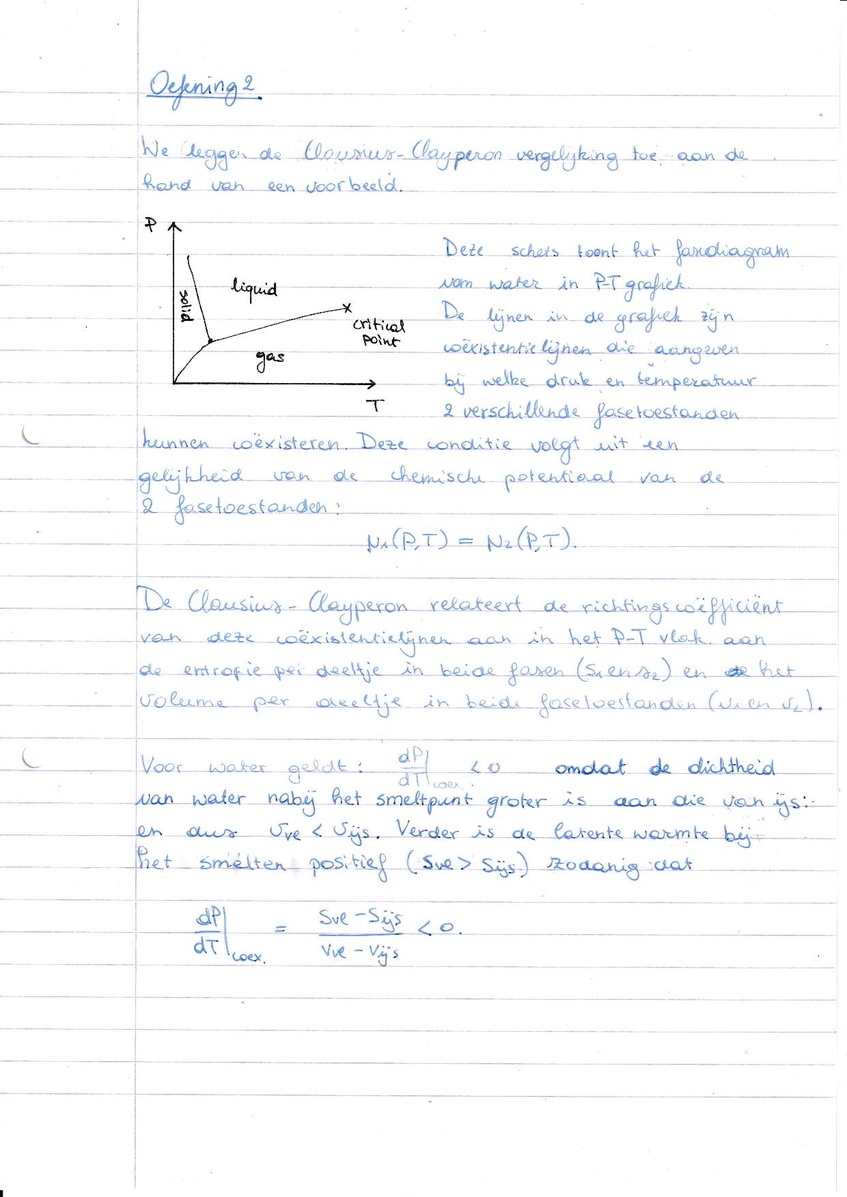 Oefening 2.
We leggen de Clausius-Clayperon vergelijking toe aan de
hand van een voorbeeld.
P
solid
liquid
critical
point
gas
T
Deze schets toont het fasediagram
van water in P-T grafiek.
De lijnen in de grafiek zijn
coëxistentielijnen die aangeven
bij welke druk en temperatuur
2 verschillende fasetoestanden
kunnen coëxisteren. Deze conditie volgt uit een
gelijkheid van de chemische potentiaal van de
2 fasetoestanden:
μ₁(P,T) = μ₂(P,T).
De Clausius-Clayperon relateert de richtingscoëfficiënt
van deze coëxistentielijnen aan in het P-T vlak aan
de entropie per deeltje in beide fasen (s₁ en s₂) en het
volume per deeltje in beide fasetoestanden (v₁ en v₂).
Voor water geldt: dP/dT|coex. < 0 omdat de dichtheid
van water nabij het smeltpunt groter is aan die van ijs:
en dus vve < vijs. Verder is de latente warmte bij
het smelten positief (Sve > Sijs) zodanig dat
dP/dT|coex. = (Sve - Sijs)/(Vve - Vijs) < 0.